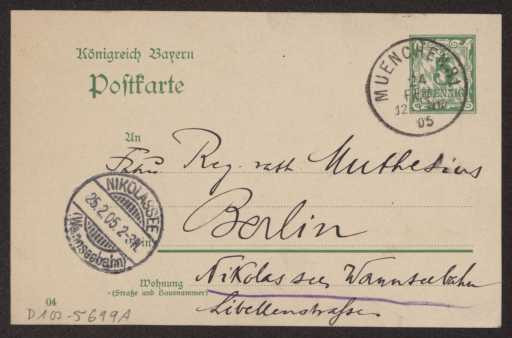 Königreich Bayern
Postkarte
5
PFENNIG
MUENCHEN
24
FEB
12
05
An
Frau Reg. rath Muthesius
NIKOLASSEE
25.2.05. 2-3N.
(Wannseebahn)
Berlin
in
Nikolassee Wannseebahn
Wohnung
(Straße und Hausnummer)
Libellenstrasse
04
D 102-5699A